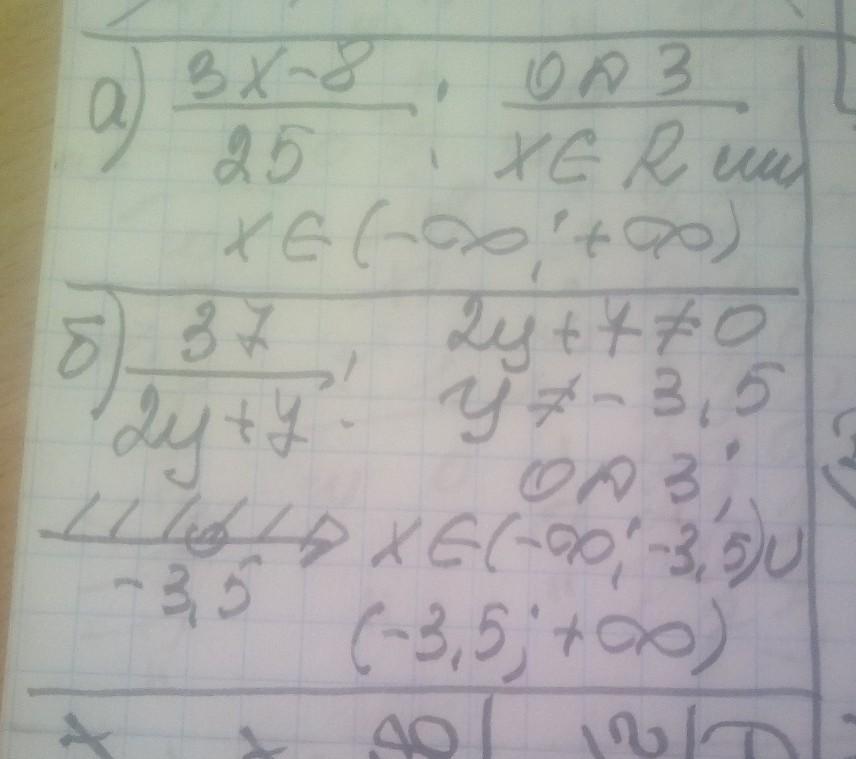 а) 3x-8 / 25 ; ОДЗ
x∈R или
x∈(-∞; +∞)
б) 37 / 2y+7 ; 2y+7≠0
y≠-3,5
ОДЗ:
x∈(-∞; -3,5)∪
-3,5
(-3,5; +∞)